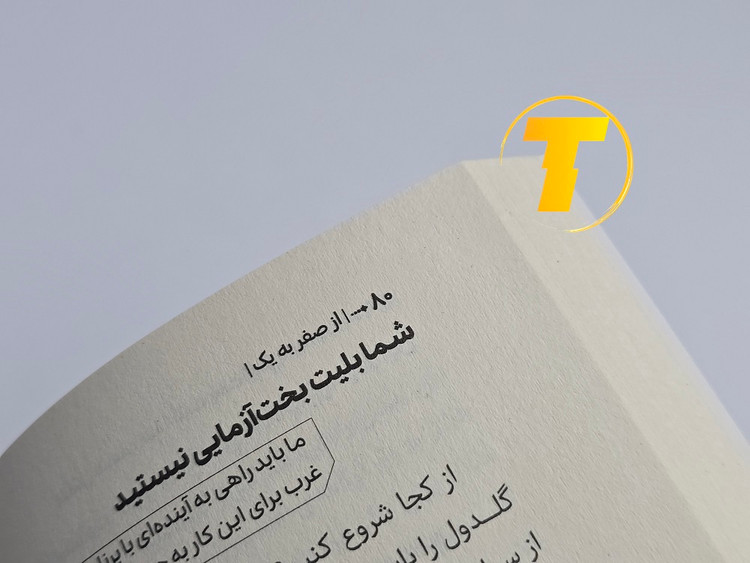 T
۸۰ | از صفر به یک |
شما بلیت بخت‌آزمایی نیستید
ما باید راهی به آینده‌ای با
غرب برای این کار به
از کجا شروع
گلدول را
از